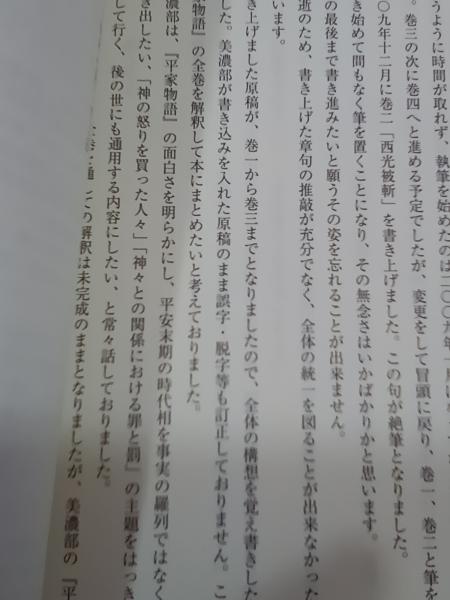 うように時間が取れず、執筆を始めたのは二〇〇九年一月
。巻三の次に巻四へと進める予定でしたが、変更をして冒頭に戻り、巻一、巻二と筆を
〇九年十二月に巻二「西光被斬」を書き上げました。この句が絶筆となりました。
き始めて間もなく筆を置くことになり、その無念さはいかばかりかと思います。
の最後まで書き進みたいと願うその姿を忘れることが出来ません。
逝のため、書き上げた章句の推敲が充分でなく、全体の統一を図ることが出来なかった
います。
き上げました原稿が、巻一から巻三までとなりましたので、全体の構想を覚え書きした
した。美濃部が書き込みを入れた原稿のまま誤字・脱字等も訂正しておりません。こ
家物語』の全巻を解釈して本にまとめたいと考えておりました。
濃部は、『平家物語』の面白さを明らかにし、平安末期の時代相を事実の羅列ではなく
き出したい、「神の怒りを買った人々」「神々との関係における罪と罰」の主題をはっき
して行く、後の世にも通用する内容にしたい、と常々話しておりました。
通しての解釈は未完成のままとなりましたが、美濃部の『平